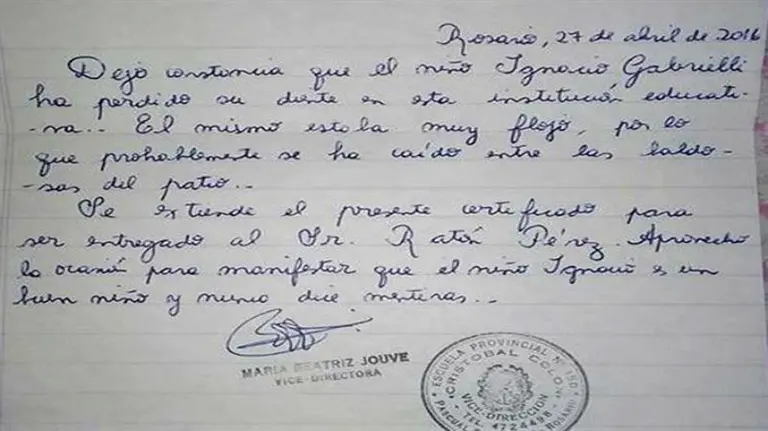 Rosario, 27 de abril de 2016
Dejo constancia que el niño Ignacio Gabrielli
ha perdido su diente en esta institución educati-
-va.. El mismo estaba muy flojo, por lo
que probablemente se ha caído entre las baldo-
-sas del patio..
Se extiende el presente certificado para
ser entregado al Sr. Ratón Pérez. Aprovecho
la ocasión para manifestar que el niño Ignacio es un
buen niño y nunca dice mentiras..
MARIA BEATRIZ JOUVE
VICE-DIRECTORA
ESCUELA PROVINCIAL Nº
CRISTOBAL COLON
VICE-DIRECCION
TEL. 4724498
ROSARIO